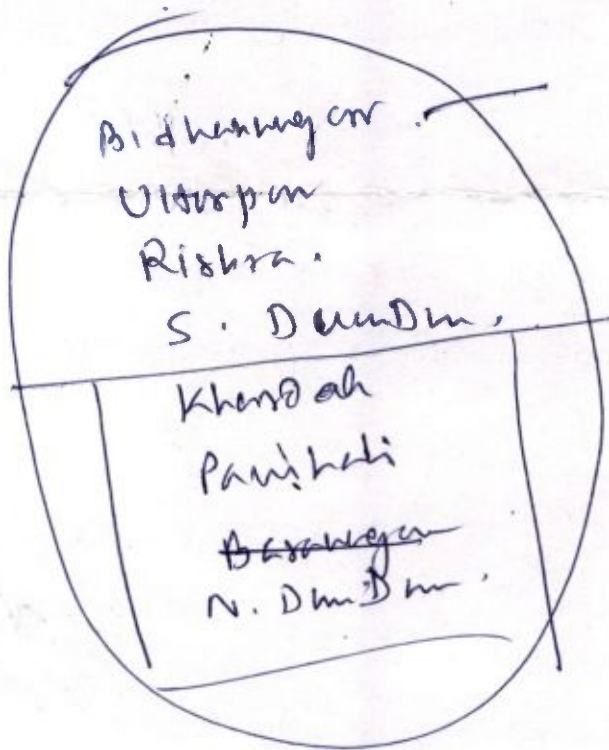 Bidhannagar.
Uttarpara
Rishra.
S. DumDum.
Khardah
Panihati
Baranagar
N. DumDum.